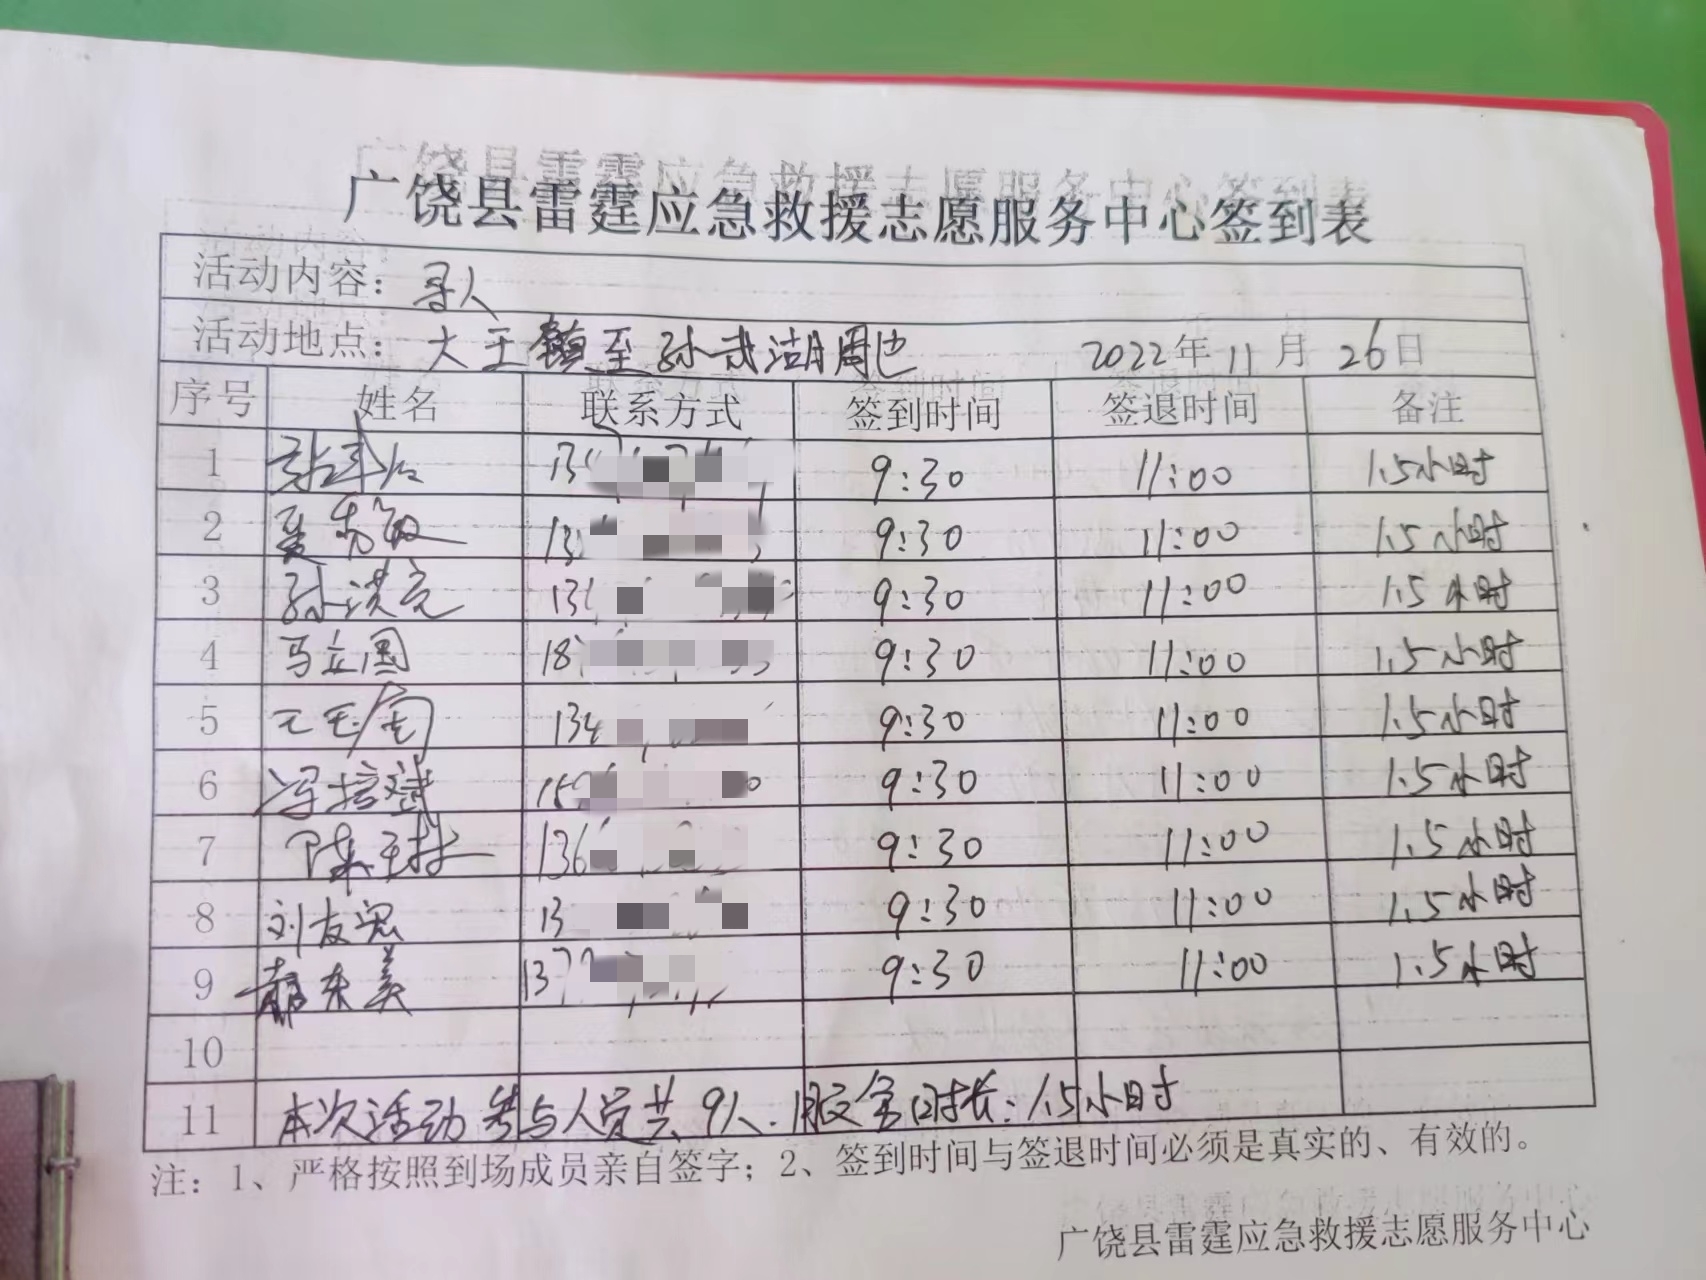 广饶县雷霆应急救援志愿服务中心签到表
活动内容：寻人
活动地点：大王镇至孙武湖周边 2022年11月26日
序号 姓名 联系方式 签到时间 签退时间 备注
1 13 9:30 11:00 1.5小时
2 13 9:30 11:00 1.5小时
3 孙洪亮 13 9:30 11:00 1.5小时
4 马立国 18 9:30 11:00 1.5小时
5 134 9:30 11:00 1.5小时
6 9:30 11:00 1.5小时
7 136 9:30 11:00 1.5小时
8 刘友 13 9:30 11:00 1.5小时
9 东美 137 9:30 11:00 1.5小时
10
11 本次活动参与人员共9人.服务时长:1.5小时
注：1、严格按照到场成员亲自签字；2、签到时间与签退时间必须是真实的、有效的。
广饶县雷霆应急救援志愿服务中心